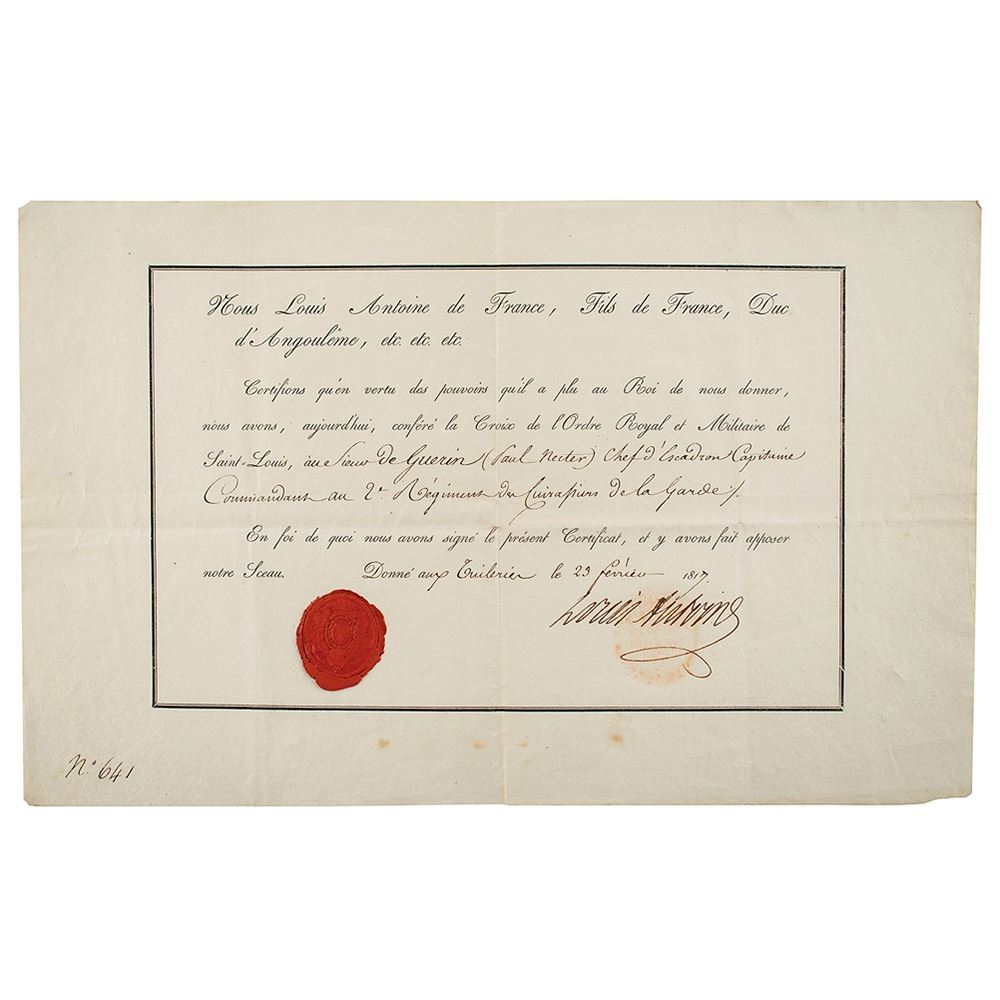 Nous Louis Antoine de France, Fils de France, Duc
d'Angoulême, etc. etc. etc.
Certifions qu'en vertu des pouvoirs qu'il a plu au Roi de nous donner,
nous avons, aujourd'hui, conféré la Croix de l'Ordre Royal et Militaire de
Saint-Louis, au Sieur de Guerin (Paul Necter) Chef d'Escadron Capitaine
Commandant au 2e Régiment du Cuirassiers de la Garde ./.
En foi de quoi nous avons signé le présent Certificat, et y avons fait apposer
notre Sceau. Donné aux Tuileries le 23 février 1817.
Louis Antoine
N.° 641